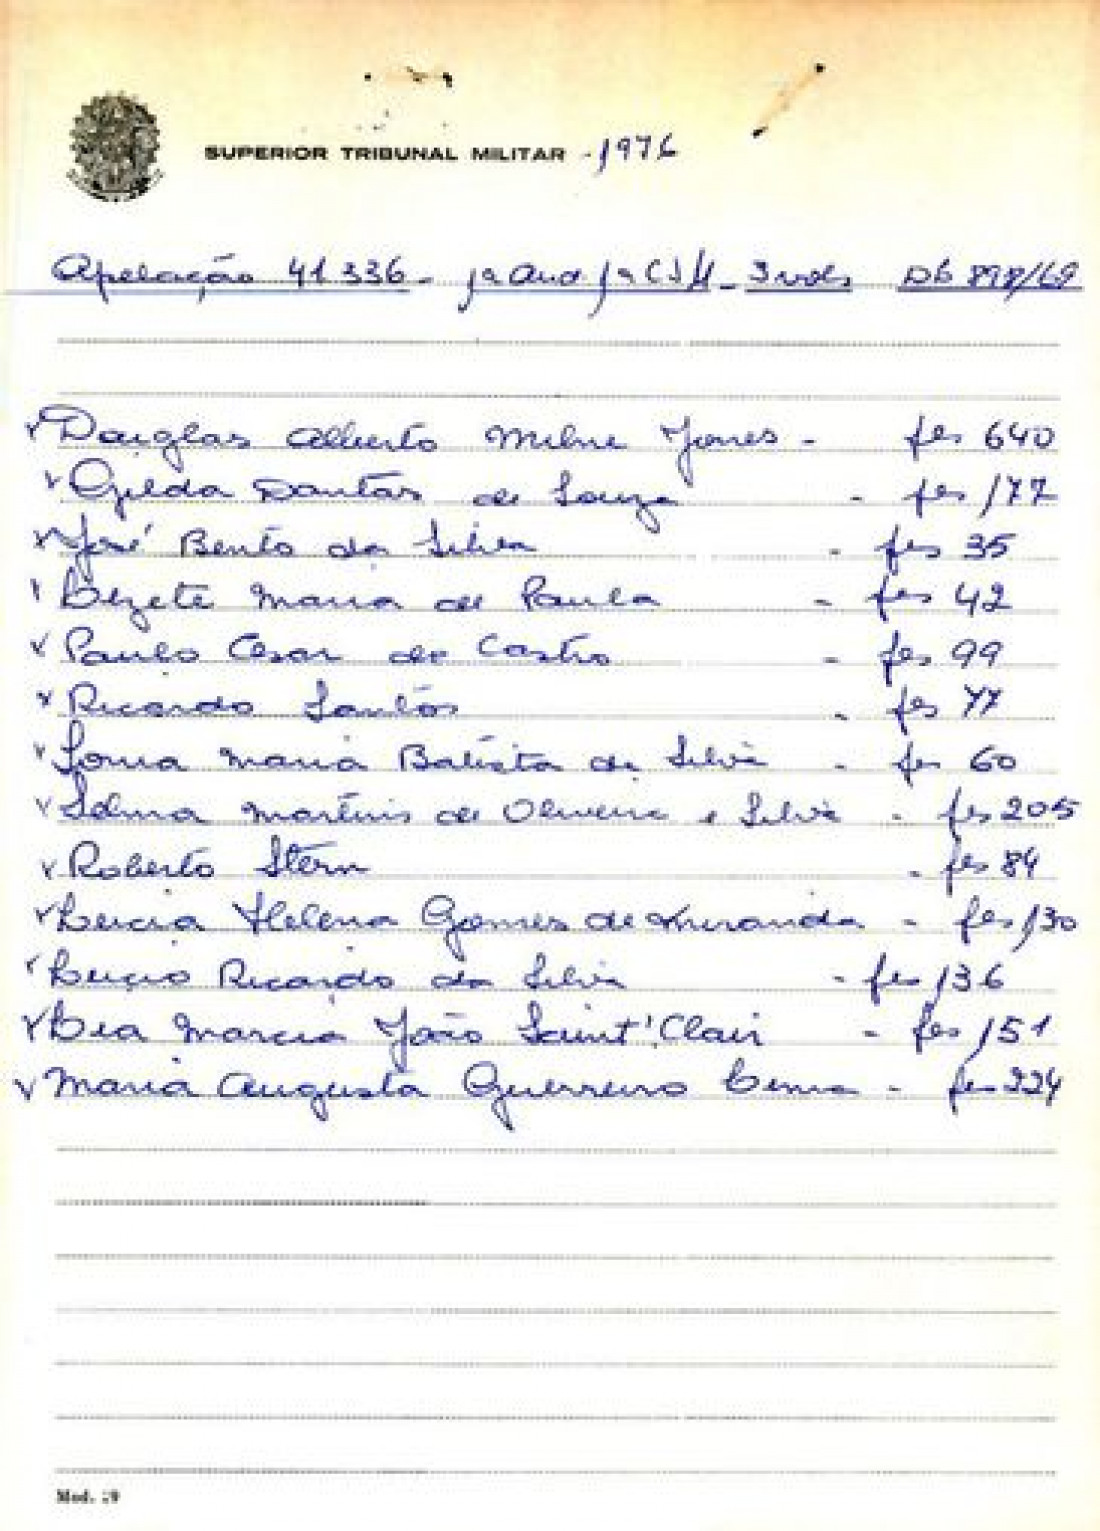 SUPERIOR TRIBUNAL MILITAR - 1976
Apelação 41.336 - 1ª Aud 1ª CJM - 3 vols DL 898/69
Douglas Alberto Milne Jones - fls 640
Gilda Dantas de Souza - fls 177
José Bento da Silva - fls 35
Lizete Maria de Paula - fls 42
Paulo Cesar de Castro - fls 99
Ricardo Santos - fls 77
Sonia Maria Batista da Silva - fls 60
Selma Martins de Oliveira e Silva - fls 205
Roberto Stern - fls 84
Lucia Helena Gomes de Miranda - fls 130
Lucio Ricardo da Silva - fls 136
Lia Marcia João Saint'Clair - fls 151
Maria Augusta Guerreiro Lema - fls 224
Mod. 29